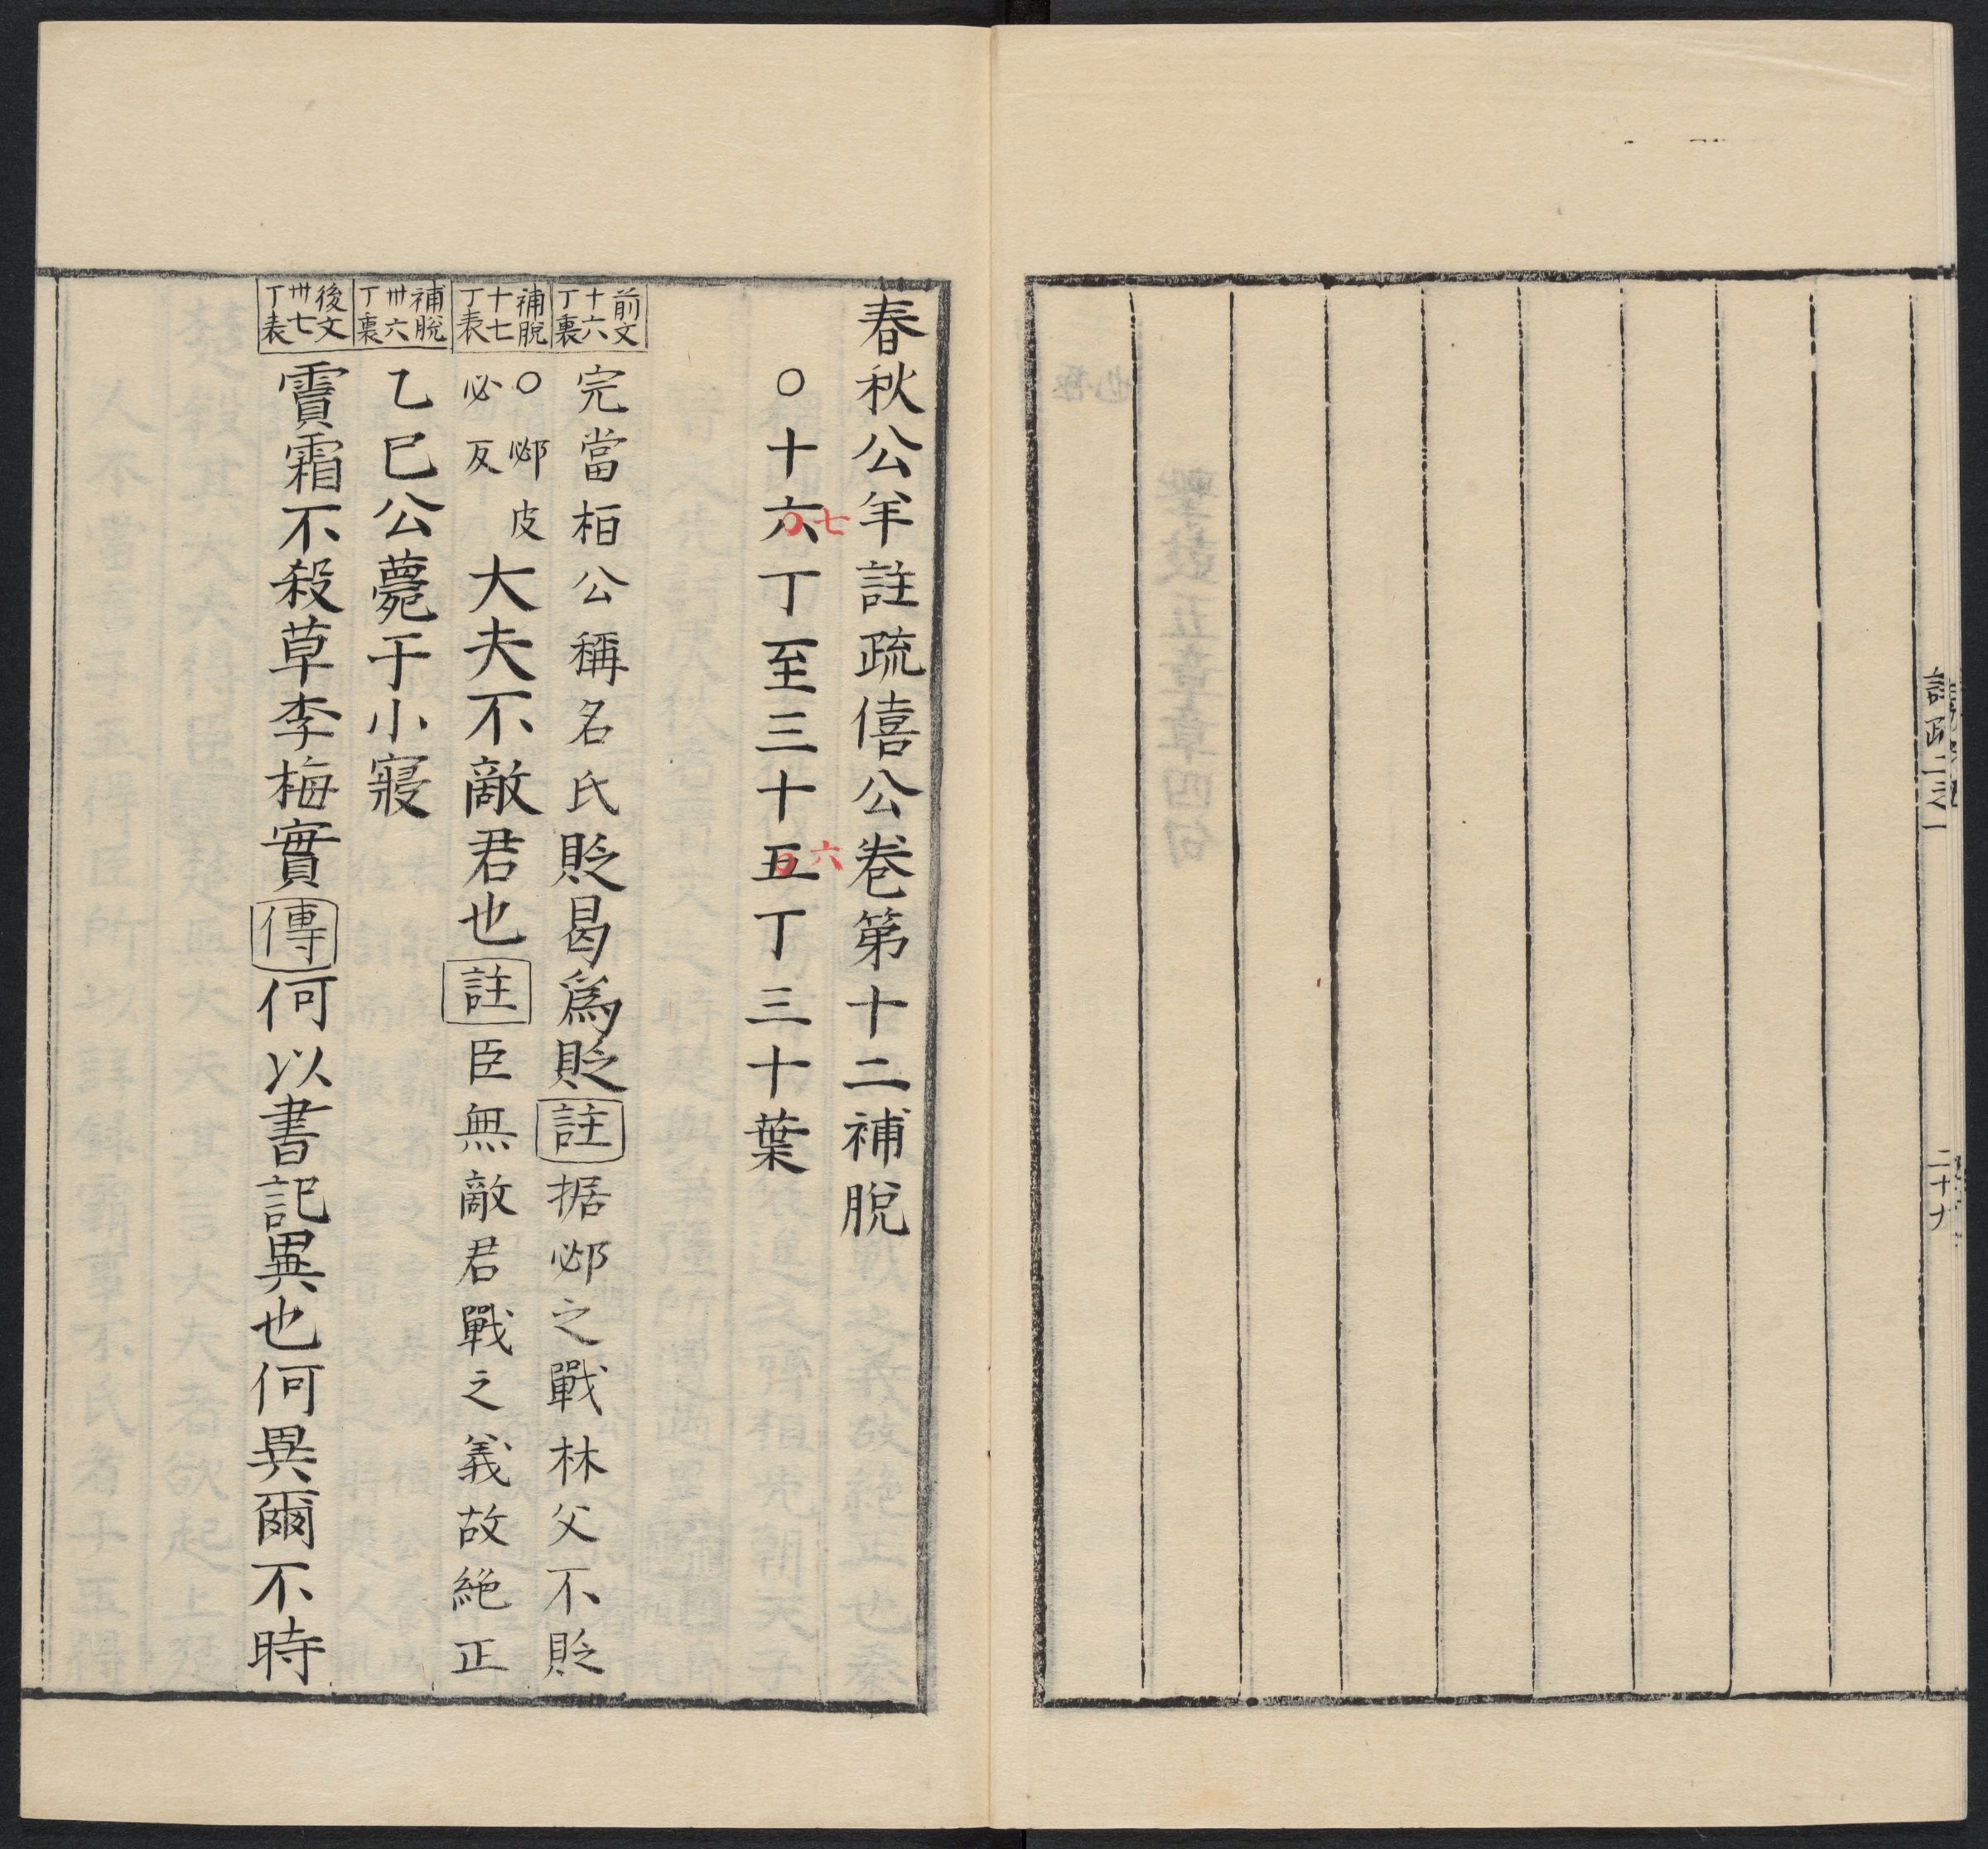 註疏二之一
春秋公羊註疏僖公卷第十二補脫
○十六丁至三十五丁三十葉
七
六
前文十六丁裏
完當桓公稱名氏貶曷爲貶註据邲之戰林父不貶
補脫十七丁表
○邲皮必反大夫不敵君也註臣無敵君戰之義故絶正
補脫卅六丁裏
乙巳公薨于小寢
後文卅七丁表
霣霜不殺草李梅實傳何以書記異也何異爾不時